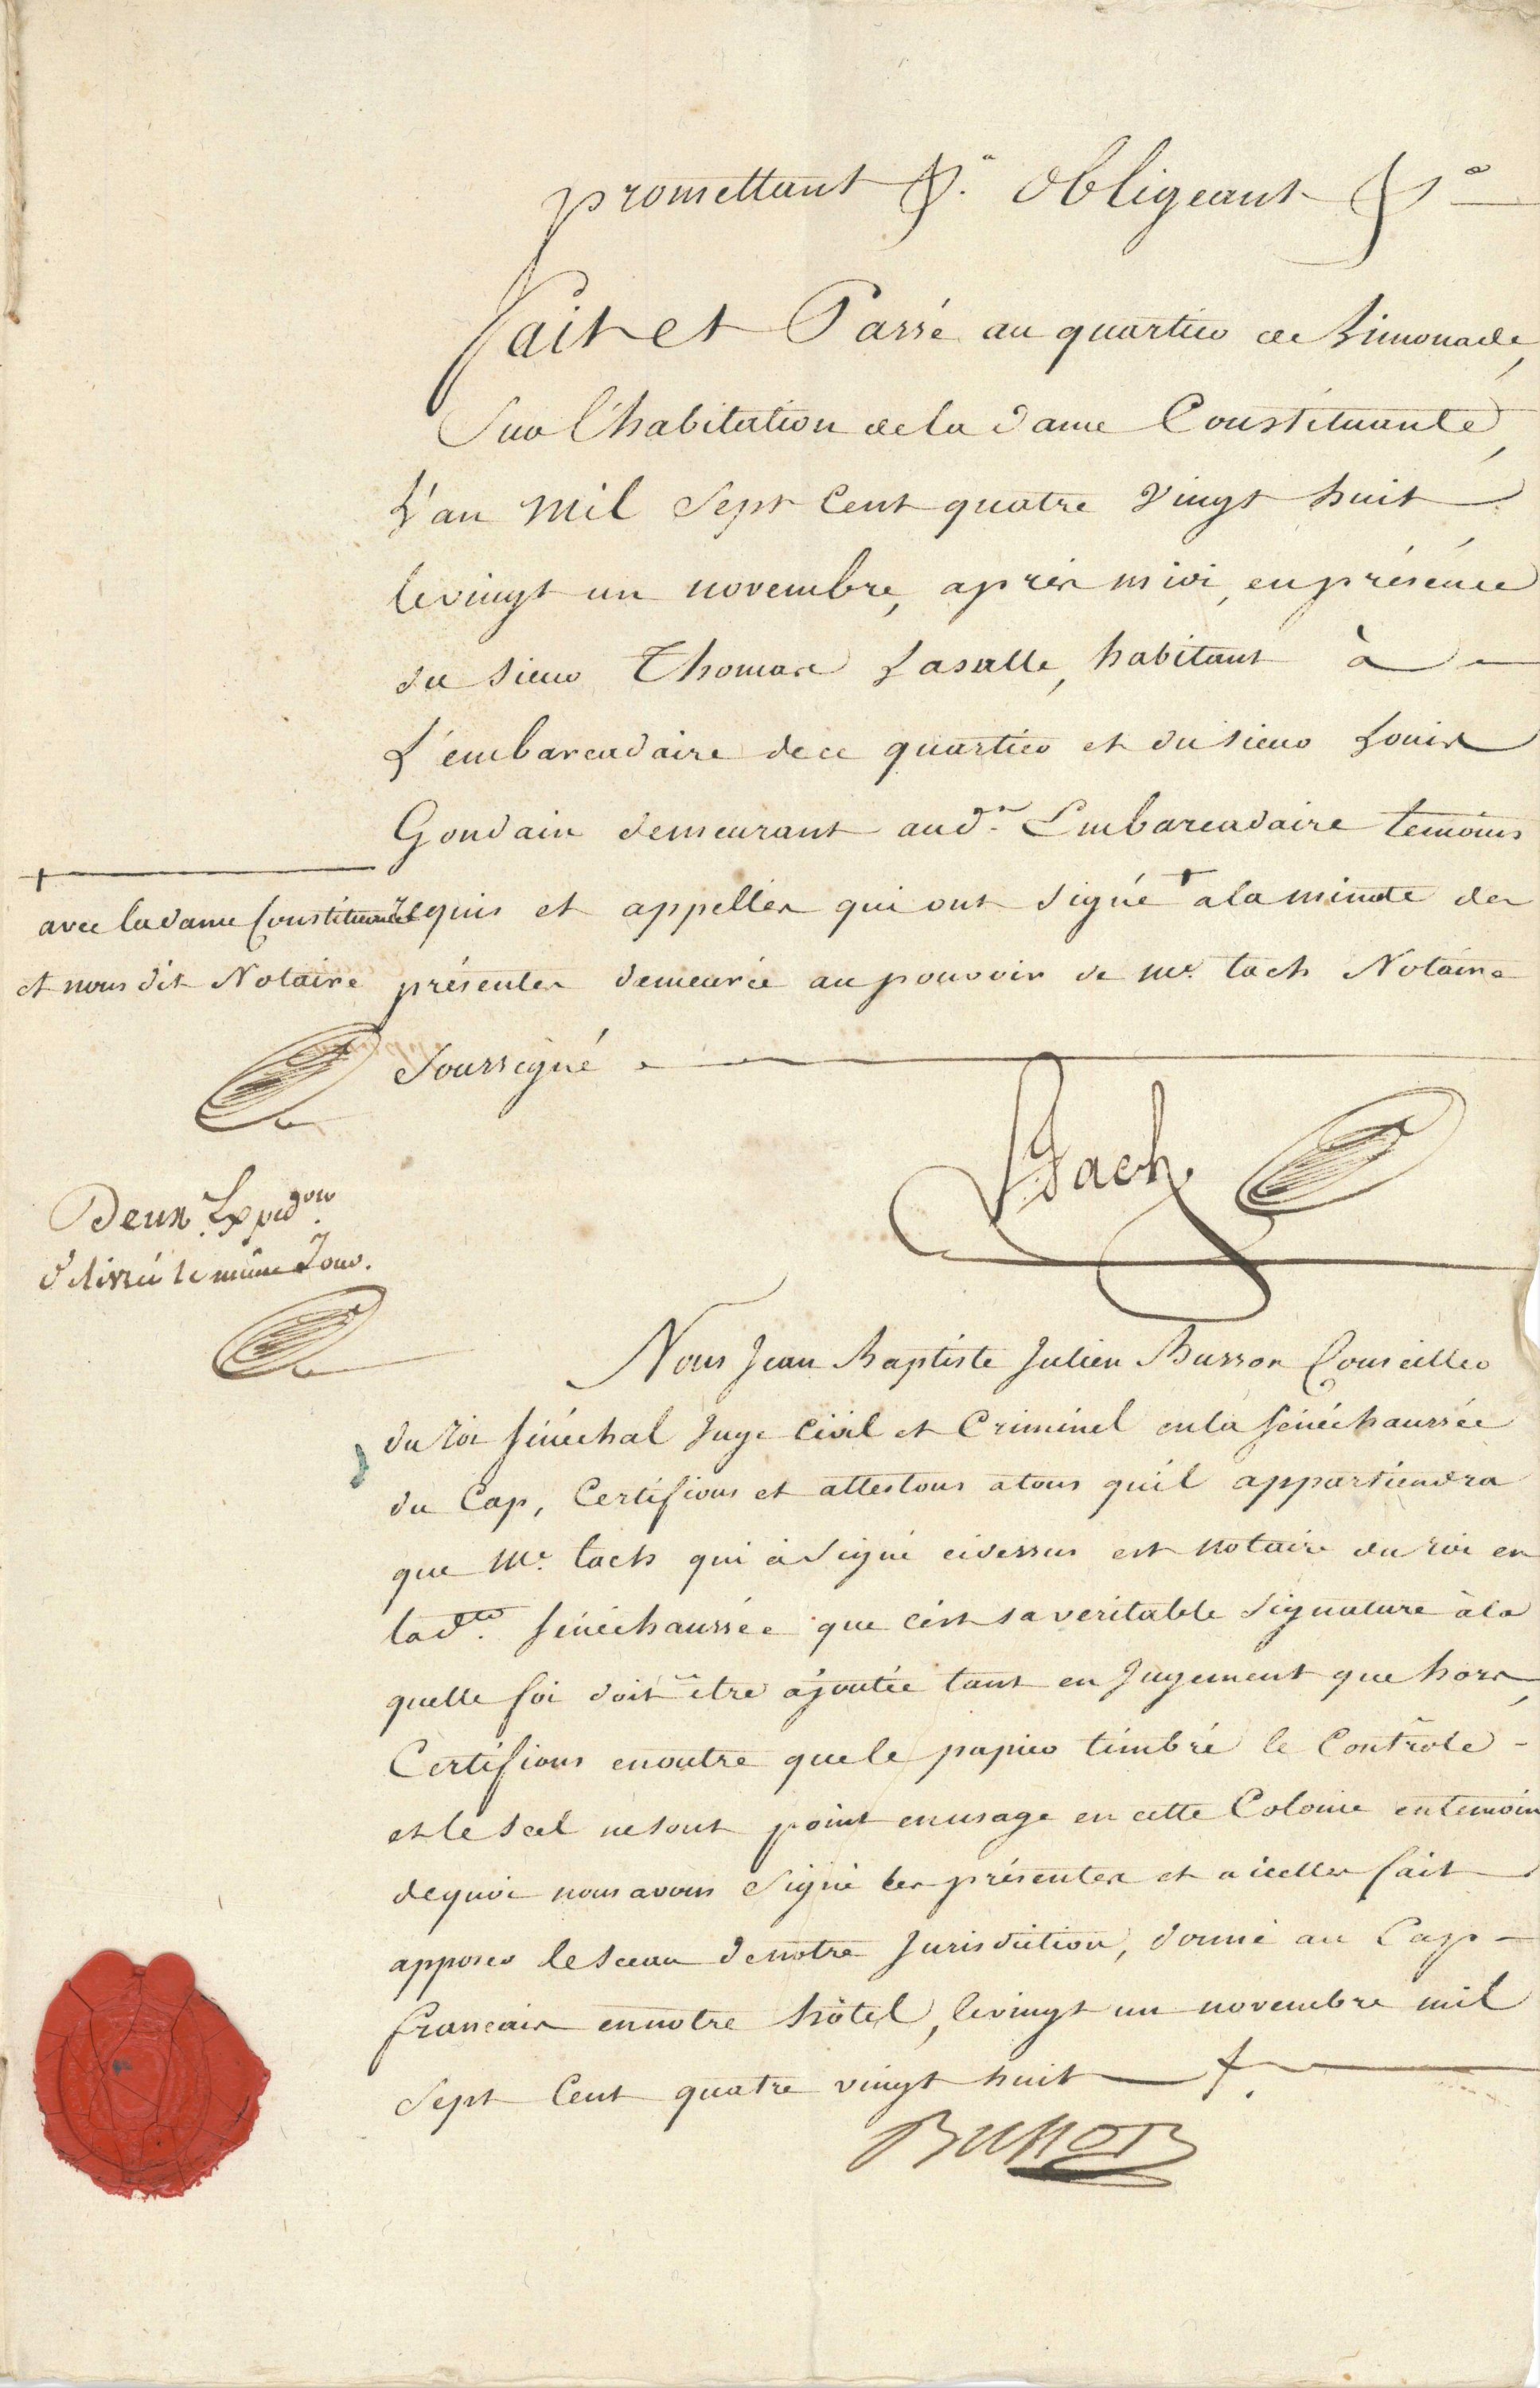 promettant &.ª obligeant &ª
fait et Passé au quartier de Limonade,
Sur l'habitation de la dame Constituante,
L'an mil Sept Cent quatre vingt huit
le vingt un novembre, après midi, en présence
du sieur Thomas Lasalle, habitant à
L'embarcadaire de ce quartier et du sieur Louis
Gondain demeurant aud.t Embarcadaire temoins
requis et appellés qui ont signé + a la minute des
présentes demeurée au pouvoir de me. tach Notaire
Soussigné
+
avec la dame Constituante
et nous dit Notaire
Tach
Deux.e Expedon.
délivrée le même Jour.
Nous Jean Baptiste Julien Busson Conseiller
du roi sénéchal Juge Civil et Criminel en la sénéchaussée
du Cap, Certifions et attestons a tous qu'il appartiendra
que Me. tach qui a signé cidessus est notaire du roi en
lad.te sénéchaussée que c'est sa veritable signature à la
quelle foi doit être ajoutée tant en Jugement que hors,
Certifions en outre que le papier timbré le Contrôle
et le scel ne sont point en usage en cette Colonie en temoin
de quoi nous avons signé les présentes et a icelles fait
apposer le sceau de notre Jurisdiction, donné au Cap
francais en notre hôtel, le vingt un novembre mil
Sept Cent quatre vingt huit
Busson